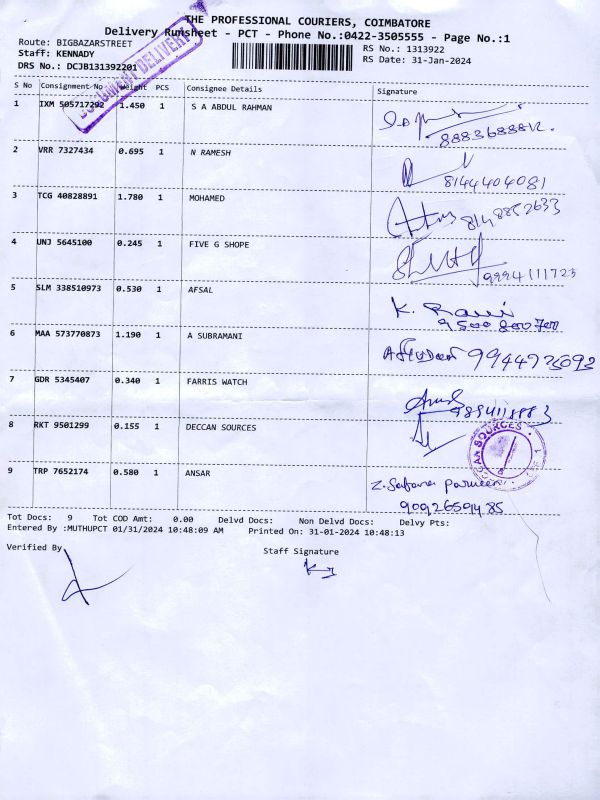 THE PROFESSIONAL COURIERS, COIMBATORE
Delivery Runsheet - PCT - Phone No.:0422-3505555 - Page No.:1
Route: BIGBAZARSTREET
RS No.: 1313922
Staff: KENNADY
RS Date: 31-Jan-2024
DRS No.: DCJB131392201
DOCUMENT DELIVERY
S No Consignment No Weight PCS Consignee Details Signature
1 IXM 505717292 1.450 1 S A ABDUL RAHMAN
2 VRR 7327434 0.695 1 N RAMESH
8144404081
3 TCG 40828891 1.780 1 MOHAMED
8148852633
4 UNJ 5645100 0.245 1 FIVE G SHOPE
9994111723
5 SLM 338510973 0.530 1 AFSAL
K. Ravi
9500800700
6 MAA 573770873 1.190 1 A SUBRAMANI
7 GDR 5345407 0.340 1 FARRIS WATCH
8 RKT 9501299 0.155 1 DECCAN SOURCES
9 TRP 7652174 0.580 1 ANSAR
Z. Safana Parveen
Tot Docs: 9 Tot COD Amt: 0.00 Delvd Docs: Non Delvd Docs: Delvy Pts:
Entered By :MUTHUPCT 01/31/2024 10:48:09 AM Printed On: 31-01-2024 10:48:13
Verified By
Staff Signature